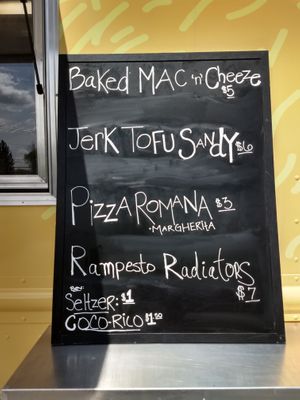 Baked MAC 'n' Cheeze
$5
Jerk TOFU SANdy $6
PIZZA ROMANA $3
-MARGHERITA
Rampesto Radiators
$7
Bev:
SelTzer: $1
COCO-RICO $1.50